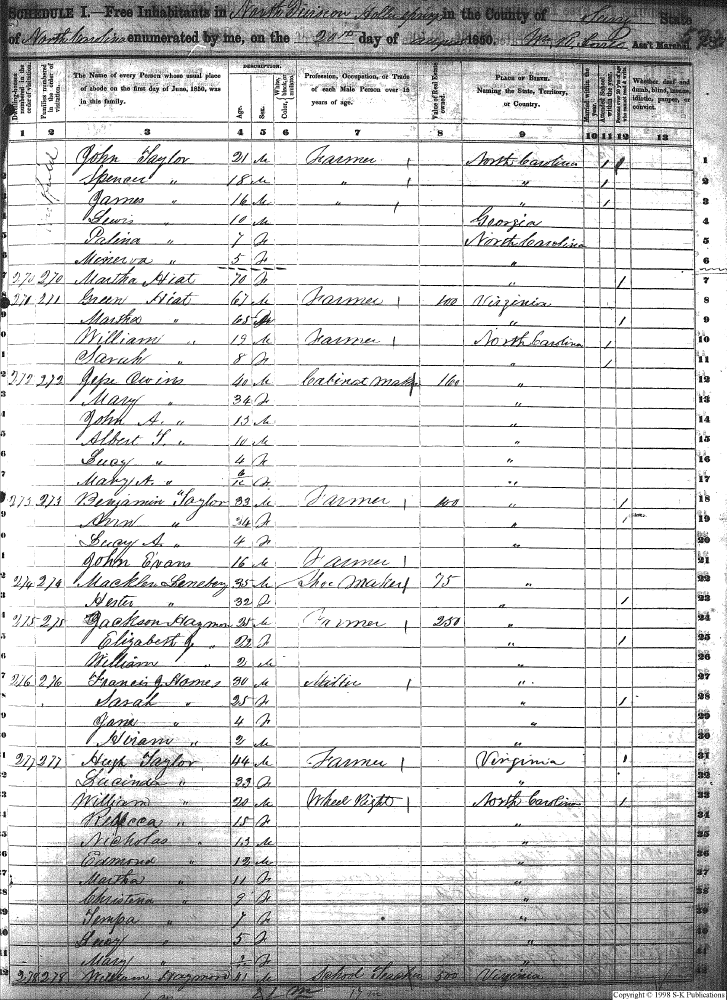 SCHEDULE I.—Free Inhabitants in North Division Hollow spring in the County of Surry State
of North Carolina enumerated by me, on the 20th day of August 1850. Wm Ass't Marshal
DESCRIPTION.
Dwelling-houses numbered in the order of visitation.
Families numbered in the order of visitation.
The Name of every Person whose usual place of abode on the first day of June, 1850, was in this family.
Age.
Sex.
Color, White, black, or mulatto.
Profession, Occupation, or Trade of each Male Person over 15 years of age.
Value of Real Estate owned.
PLACE OF BIRTH. Naming the State, Territory, or Country.
Married within the year.
Attended School within the year.
Persons over 20 y'rs of age who cannot read & write.
Whether deaf and dumb, blind, insane, idiotic, pauper, or convict.
1 2 3 4 5 6 7 8 9 10 11 12 13
John Taylor 21 M Farmer North Carolina 1 1
Spencer " 18 M " " 1 2
James " 16 M " " 1 3
Lewis " 10 M Georgia 4
Palina " 7 F North Carolina 5
Minerva " 5 F " 6
270 270 Martha Hiat 70 F " 1 7
271 271 Green Hiat 67 M Farmer 100 Virginia 8
Martha " 65 F " 1 9
William " 19 M Farmer North Carolina 1 10
Sarah " 8 F " 1 11
272 272 Jesse Owins 40 M Cabinet Maker 160 " 12
Mary " 34 F " 13
John A. " 13 M " 14
Albert T. " 10 M " 15
Lucy " 4 F " 16
Mary A. " F " 17
273 273 Benjamin Taylor 33 M Farmer 100 " 1 18
Ann " 34 F " 1 19
Lucy A. " 4 F " 20
John Evans 16 M Farmer 21
274 274 Macklin 35 M Shoe Maker 75 " 22
Hester " 32 F " 1 23
275 275 Jackson Haymon 25 M Farmer 250 " 24
Elizabeth J. " 22 F " 1 25
William " 2 M " 26
276 276 Francis J Homes 30 M Miller " 27
Sarah " 25 F " 1 28
Jane " 4 F " 29
Hiram " 2 M " 30
277 277 Hugh Taylor 44 M Farmer Virginia 1 31
Lucinda " 33 F " 32
William " 20 M Wheel Right North Carolina 1 33
Rebecca " 15 F " 34
Nicholas " 13 M " 35
Edmond " 12 M " 36
Martha " 11 F " 37
Christena " 9 F " 38
Tempa " 7 F " 39
" 5 F " 40
Mary " F " 41
278 278 William Haymon 41 M School Teacher 500 Virginia 42
Copyright © 1998 S-K Publications